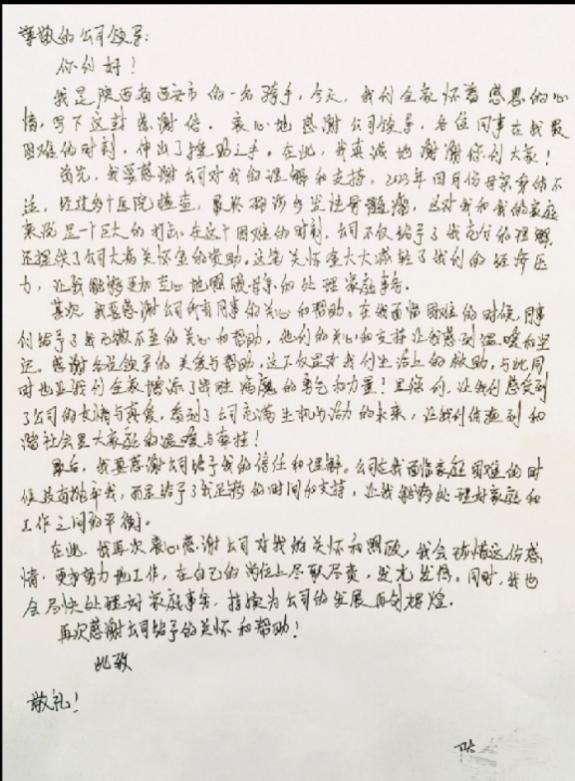 尊敬的公司领导:
你们好!
我是陕西省西安市的一名骑手,今天,我们全家怀着感恩的心
情,写下这封感谢信。衷心地感谢公司领导,各位同事在我最
困难的时刻,伸出了援助之手。在此,我真诚地谢谢你们大家!
首先,我要感谢公司对我的理解和支持,2023年四月份母亲身体不
适,经过多个医院检查,最终确诊多发性骨髓瘤,这对我和我的家庭
来说是一个巨大的打击。在这个困难的时刻,公司不仅给予了我充分的理解,
还提供了公司大病关怀金的资助。这笔关怀金大大减轻了我们的经济压
力,让我能够更加安心地照顾母亲的处理家庭事务。
其次,我要感谢公司所有同事的关心和帮助。在我面临困难的时候,同事
们给予了我无微不至的关心和帮助,他们的关心和支持让我感到温暖和坚
定。感谢各位领导的关爱与帮助,这不仅是对我们生活上的救助,与此同
时也让我们全家增添了战胜病魔的勇气和力量!是你们,让我们感受到
了公司的真情与真爱,看到了公司充满生机与活力的未来,让我们体验到和
谐社会是大家庭的温暖与幸福!
最后,我要感谢公司给予我的信任和理解。公司在我面临家庭困难的时
候没有抛弃我,而是给予了我足够的时间和支持,让我能够处理好家庭和
工作之间的平衡。
在此,我再次衷心感谢公司对我的关怀和照顾,我会珍惜这份感
情,更加努力地工作,在自己的岗位上尽职尽责,发光发热。同时,我也
会尽快处理好家庭事务,继续为公司的发展再创辉煌。
再次感谢公司给予的关怀和帮助!
此致
敬礼!